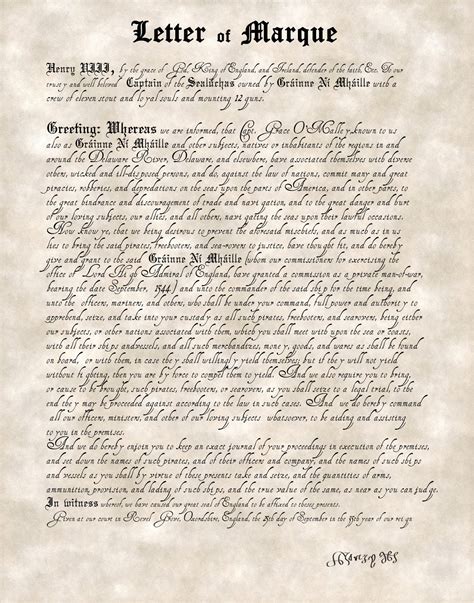 Letter of Marque
Henry VIII, by the grace of God, King of England, and Ireland, defender of the faith, Etc. To our
trusty and well beloved Captain of the Sealúchas owned by Gráinne Ní Mháille with a
crew of eleven stout and loyal souls and mounting 12 guns.
Greeting: Whereas we are informed, that Capt. Grace O'Malley known to us
also as Gráinne Ní Mháille and other subjects, natives or inhabitants of the regions in and
around the Delaware River, Delaware, and elsewhere, have associated themselves with diverse
others, wicked and ill-disposed persons, and do, against the law of nations, commit many and great
piracies, robberies, and depredations on the seas upon the parts of America, and in other parts, to
the great hindrance and discouragement of trade and navigation, and to the great danger and hurt
of our loving subjects, our allies, and all others, navigating the seas upon their lawful occasions.
Now know ye, that we being desirous to prevent the aforesaid mischiefs, and as much as in us
lies to bring the said pirates, freebooters, and sea-rovers to justice, have thought fit, and do hereby
give and grant to the said Gráinne Ní Mháille (whom our commissioners for exercising the
office of Lord High Admiral of England, have granted a commission as a private man-of-war,
bearing the date September, 1544) and unto the commander of the said ship for the time being, and
unto the officers, mariners, and others, who shall be under your command, full power and authority to
apprehend, seize, and take into your custody as all such pirates, freebooters, and searovers, being either
our subjects, or other nations associated with them, which you shall meet with upon the sea or coasts,
with all their ships and vessels, and all such merchandizes, money, goods, and wares as shall be found
on board, or with them, in case they shall willingly yield themselves; but if they will not yield
without fighting, then you are by force to compel them to yield. And we also require you to bring,
or cause to be brought, such pirates, freebooters, or searovers, as you shall seize to a legal trial, to the
end they may be proceeded against according to the law in such cases. And we do hereby command
all our officers, ministers, and other of our loving subjects whatsoever, to be aiding and assisting
to you in the premises.
And we do hereby enjoin you to keep an exact journal of your proceedings in execution of the premises,
and set down the names of such pirates, and of their officers and company, and the names of such ships
and vessels as you shall by virtue of these presents take and seize, and the quantities of arms,
ammunition, provision, and lading of such ships, and the true value of the same, as near as you can judge.
In witness whereof, we have caused our great seal of England to be affixed to these presents.
Given at our court in Revel Grove, Oxfordshire, England, the 25th day of September in the 35th year of our reign